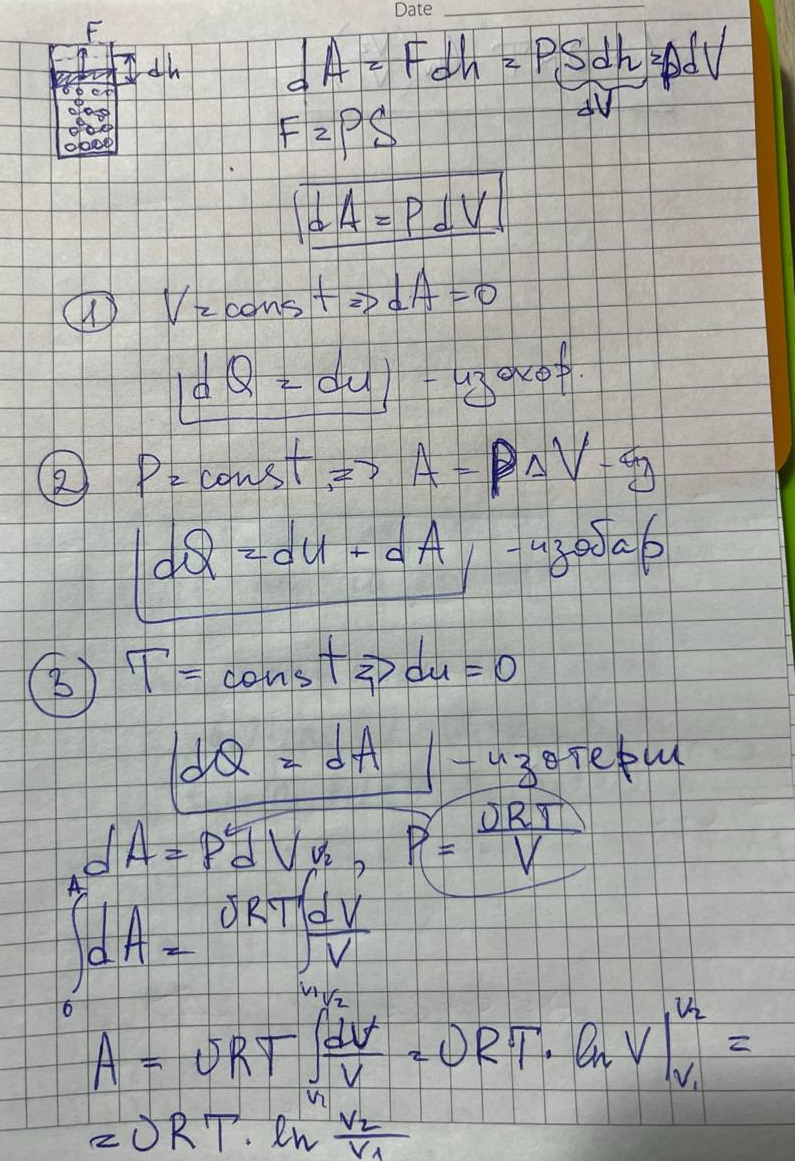 Date
F
dh
dA = Fdh = PSdh = pdV
dV
F = PS
dA = PdV
① V = const => dA = 0
dQ = du - изохор.
② P = const, => A = PΔV -
dQ = du + dA, - изобар
③ T = const => du = 0
dQ = dA - изотерм
dA = PdV, P = υRT/V
∫₀ᴬ dA = υRT ∫_{V₁}^{V₂} dV/V
A = υRT ∫_{V₁}^{V₂} dV/V = υRT · ln V |_{V₁}^{V₂} =
= υRT · ln V₂/V₁